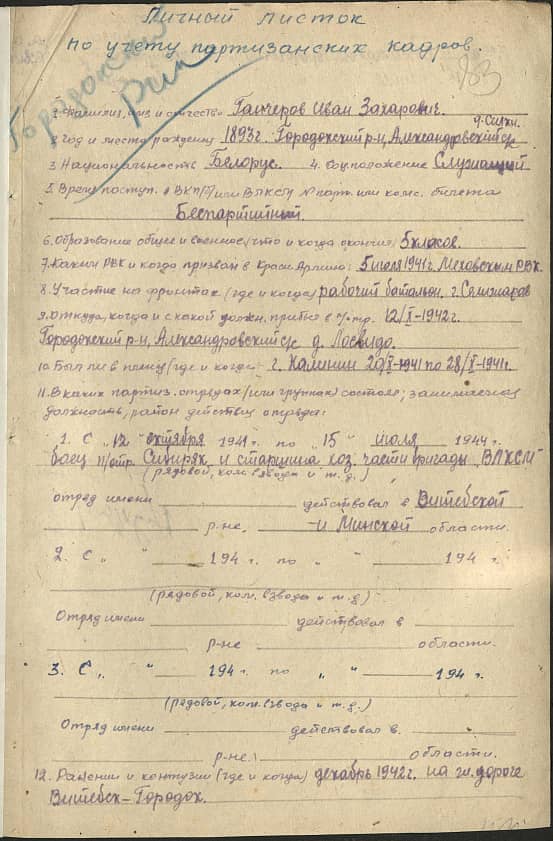 Личный листок
по учету партизанских кадров.
Городокский
РИК
83
1. Фамилия, имя и отчество Ганчеров Иван Захарович.
2. Год и место рождения 1893г. Городокский р-н, Александровский с/с
3. Национальность Белорус. 4. Соцположение Служащий
5. Время поступ. в ВКП(б) или ВЛКСМ № парт. или комс. билета
Беспартийный
6. Образование общее и военное (что и когда окончил) 5 класов.
7. Каким РВК и когда призван в Красн Армию: 5 июля 1941г. Меховским РВК.
8. Участие на фронтах (где и когда) рабочий батальон. г. Селижаров
9. Откуда, когда и с какой должн. прибыл в п/отр. 12/X-1942г.
Городокский р-н, Александровский с/с д. Лосвидо.
10. Был ли в плену (где и когда) г. Калинин 20/X-1941 по 28/X-1941г.
11. В каких партиз. отрядах (или группах) состоял; занимаемая
должность, район действия отряда:
1. С „12" октября 1941 г. по „15" июля 1944 г.
боец п/отр. Сибиряк и старшина хоз. части бригады „ВЛКСМ"
(рядовой, ком. взвода и т. д.)
отряд имени действовал в Витебской
р-не, и Минской области.
2. С „ " 194 г. по „ " 194 г.
(рядовой, ком. взвода и т. д.)
Отряд имени действовал в
р-не области.
3. С „ " 194 г. по „ " 194 г.
(рядовой, ком. взвода и т. д.)
Отряд имени действовал в.
р-не. области.
12. Ранении и контузии (где и когда) декабрь 1942г. на ж. дороге
Витебск-Городок.